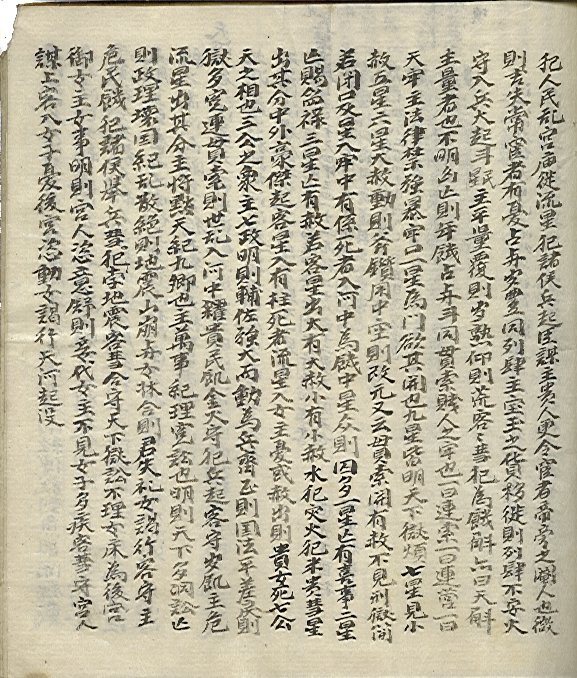 犯人民乱宮庙徙流星犯諸侯兵起臣謀主貴人更令宦者帝旁之閹人也微
則吉失常宦者有憂占与安豊同列肆主宝玉之貨移徙則列肆不安火
守入兵大起斗斛主平量覆則岁熟仰則荒客々彗犯為饑斛亦曰天斛
主量者也不明凶亡則年饑占与斗同貫索賤人之牢也一曰連索一曰連営一曰
天牢主法律禁強暴牢口一星為門欲其開也九星皆明天下獄煩七星見小
赦五星三星大赦動則斧鑕用中空則改元又云貫索開有赦不見刑獄簡
若閉口及星入牢中有係死者入河中為饑中星众則囚多一星亡有喜事二星
亡賜爵禄三星亡有赦若客星出大有大赦小有小赦水犯災火犯米貴彗星
出其分中外豪傑起客星入有枉死者流星入女主憂或赦出則貴女死七公
天之相也三公之象主七政明則輔佐強大而動為兵齊正則国法平差戾則
獄多冤連貫索則世乱入河中糴貴民飢金火守犯兵起客守岁飢主危
流星出其分主将黜天紀九卿也主萬事紀理冤訟也明則天下多詞訟亡
則政理壊国紀乱散絶則地震山崩与女牀合則君失礼女謁行客守主
危民饑犯諸侯舉兵彗犯孛地震客彗合守天下獄訟不理女床為後宮
御女主女事明則宮人恣意舒則妾代女主不見女子多疾客彗守宮人
謀上客入女子憂後宮恣動女謁行天河起没